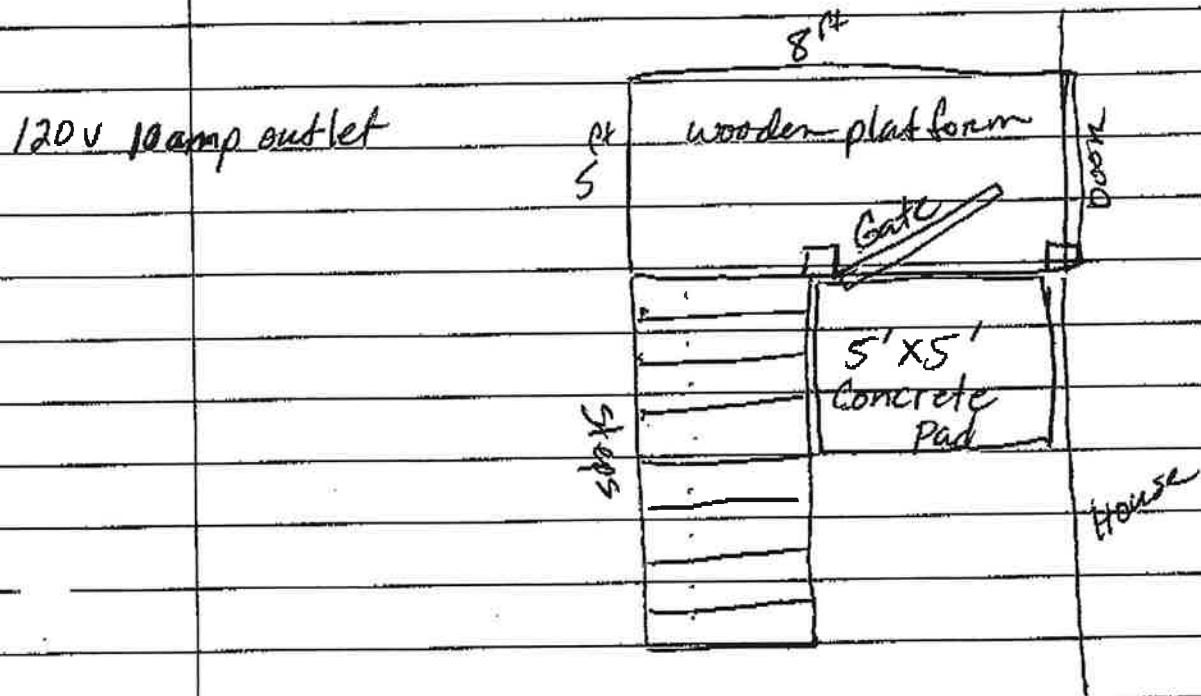 8 ft
120 V 10 amp outlet
5 ft
wooden platform
Door
Gate
5' X 5'
Concrete
Pad
Steps
House